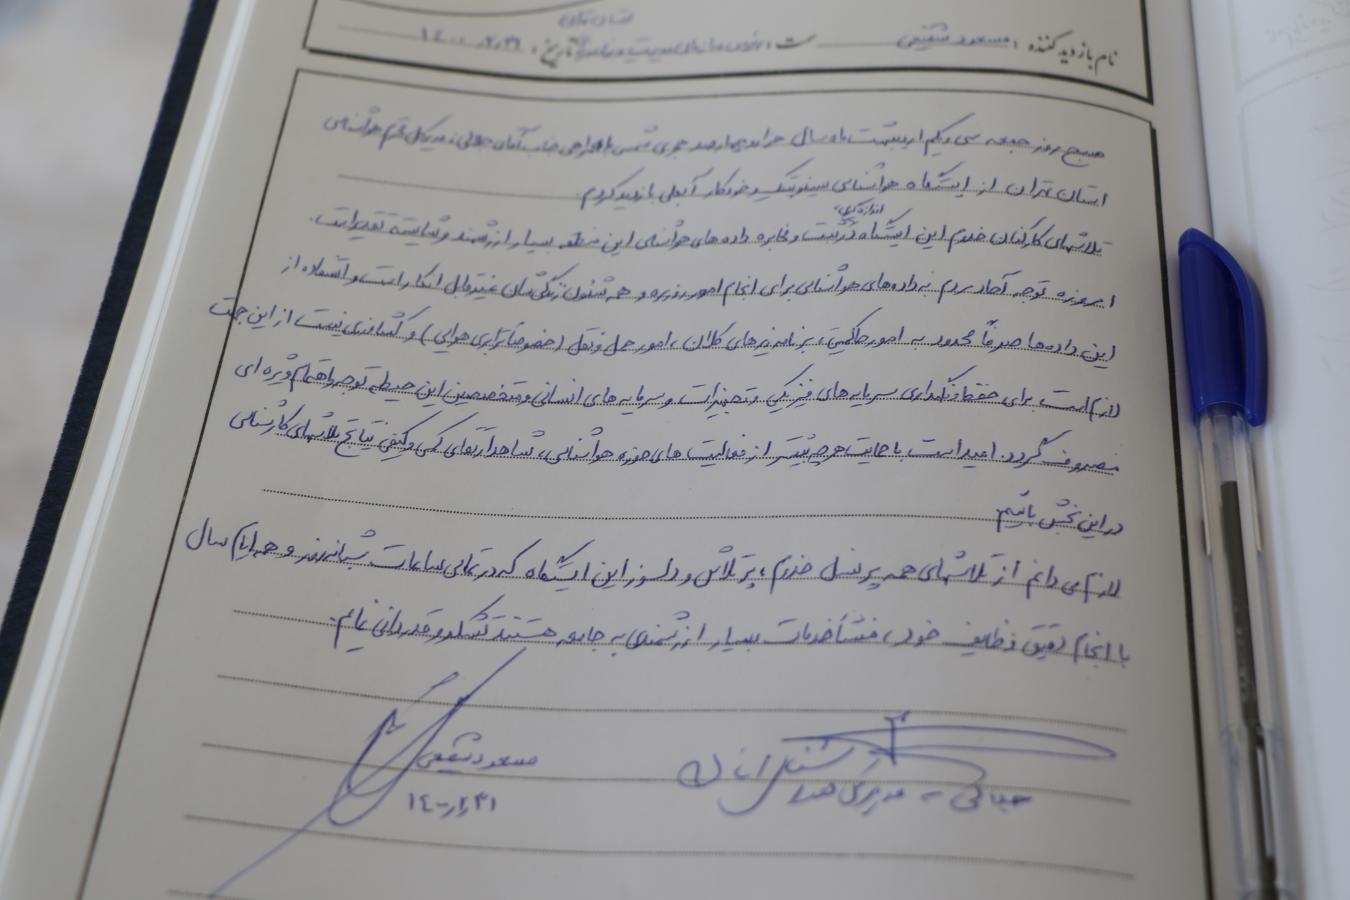 استان تهران
نام بازدید کننده : مسعود شفیعی سمت : رئیس سازمان مدیریت و برنامه‌ریزی تاریخ : ۱۴۰۰/۲/۳۱
صبح روز جمعه سی و یکم اردیبهشت ماه سال هزار و چهارصد هجری شمسی با همراهی جناب آقای جلالی، مدیرکل محترم هواشناسی
استان تهران از ایستگاه هواشناسی سینوپتیک و خودکار آبعلی بازدید کردم.
اندازه‌گیری،
تلاشهای کارکنان خدوم این ایستگاه در ثبت و مخابره داده‌های هواشناسی این منطقه بسیار ارزشمند و شایسته تقدیر است.
امروزه توجه آحاد مردم به داده‌های هواشناسی برای انجام امور روزمره و همه شئون زندگی‌شان غیرقابل انکار است و استفاده از
این داده‌ها صرفاً محدود به امور حاکمیتی، برنامه‌ریزیهای کلان، امور حمل و نقل (خصوصاً ترابری هوایی) و کشاورزی نیست از این جهت
لازم است برای حفظ و نگهداری سرمایه‌های فیزیکی و تجهیزات و سرمایه‌های انسانی و متخصصین این حیطه توجه و اهتمام ویژه‌ای
مصروف گردد. امید است با حمایت هرچه بیشتر از فعالیت‌های حوزه هواشناسی، شاهد ارتقای کمی و کیفی نتایج تلاشهای کارشناسی
در این بخش باشیم.
لازم می‌دانم از تلاشهای همه پرسنل خدوم، پرتلاش و دلسوز این ایستگاه که در تمامی ساعات شبانه‌روز و همه ایام سال
با انجام دقیق وظایف خود، منشأ خدمات بسیار ارزشمندی به جامعه هستند تشکر و قدردانی نمایم.
مسعود شفیعی
۱۴۰۰/۲/۳۱